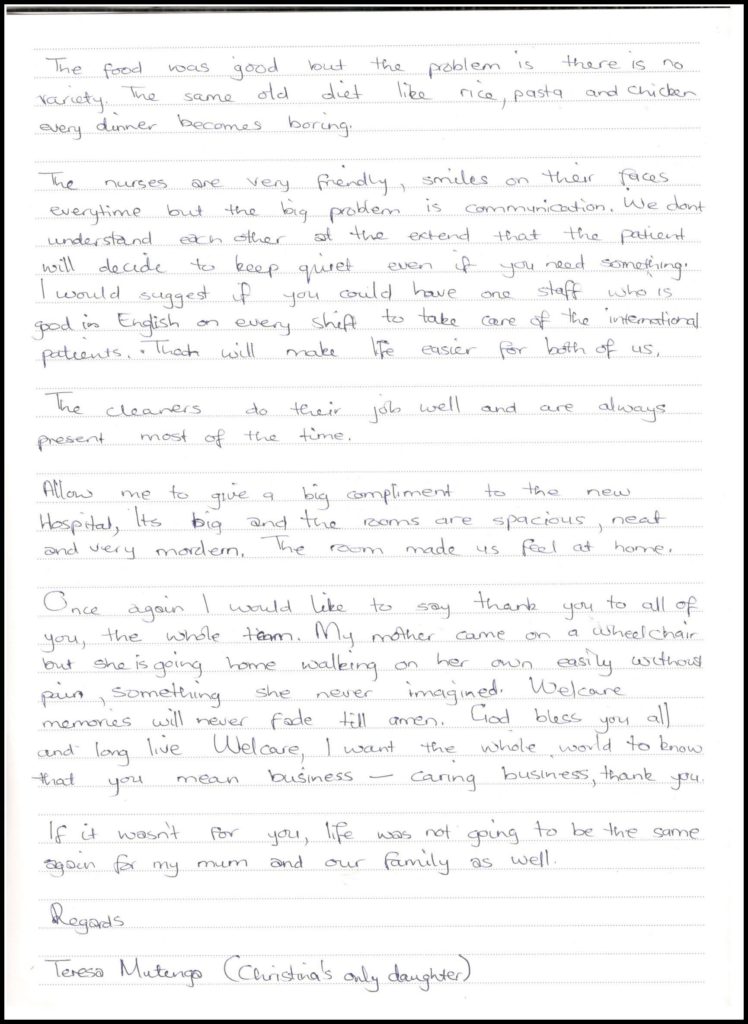 The food was good but the problem is there is no
variety. The same old diet like rice, pasta and chicken
every dinner becomes boring.
The nurses are very friendly, smiles on their faces
everytime but the big problem is communication. We dont
understand each other at the extend that the patient
will decide to keep quiet even if you need something.
I would suggest if you could have one staff who is
good in English on every shift to take care of the international
patients. That will make life easier for both of us,
The cleaners do their job well and are always
present most of the time.
Allow me to give a big compliment to the new
Hospital, Its big and the rooms are spacious, neat
and very mordern. The room made us feel at home.
Once again I would like to say thank you to all of
you, the whole team. My mother came on a wheelchair
but she is going home walking on her own easily without
pain, something she never imagined. Welcare
memories will never fade till amen. God bless you all
and long live Welcare, I want the whole world to know
that you mean business — caring business, thank you.
If it wasn't for you, life was not going to be the same
again for my mum and our family as well.
Regards
Teresa Mutenga (Christina's only daughter)